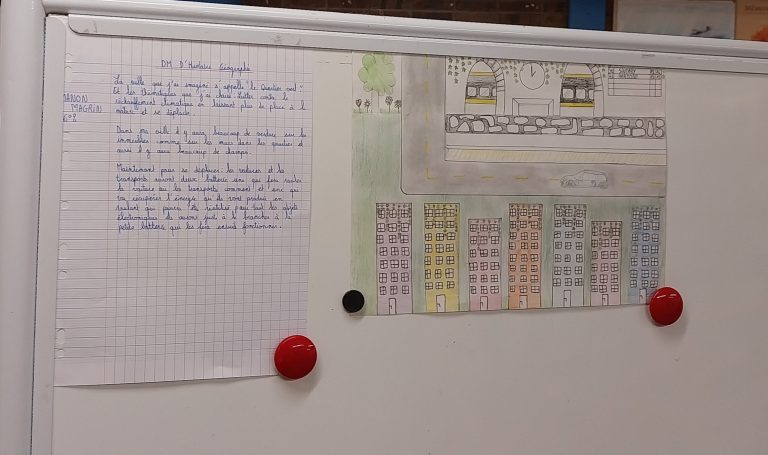 DM D'Histoire Géographie
La ville que j'ai imaginé s'appelle "Le Quartier vert".
Et les thématiques que j'ai choisi : Lutter contre le
réchauffement climatique en laissant plus de place à la
nature et se déplacer.
MANON
MAGRIN
6e8
Dans ma ville il y aura beaucoup de verdure sur les
immeubles comme sur les murs dans les quartier et
aussi il y aura beaucoup de champs.
Maintenant pour se déplacer : les voitures et les
transports auront deux batterie une qui fera rouler
la voiture ou les transports commun et une qui
va récupérer l'énergie qu'ils vont produit en
roulant qui pourra être réutilisé pour tout les objets
électroniques ils auront juste à le brancher à la
petite batterie qui les fera ensuite fonctionner.